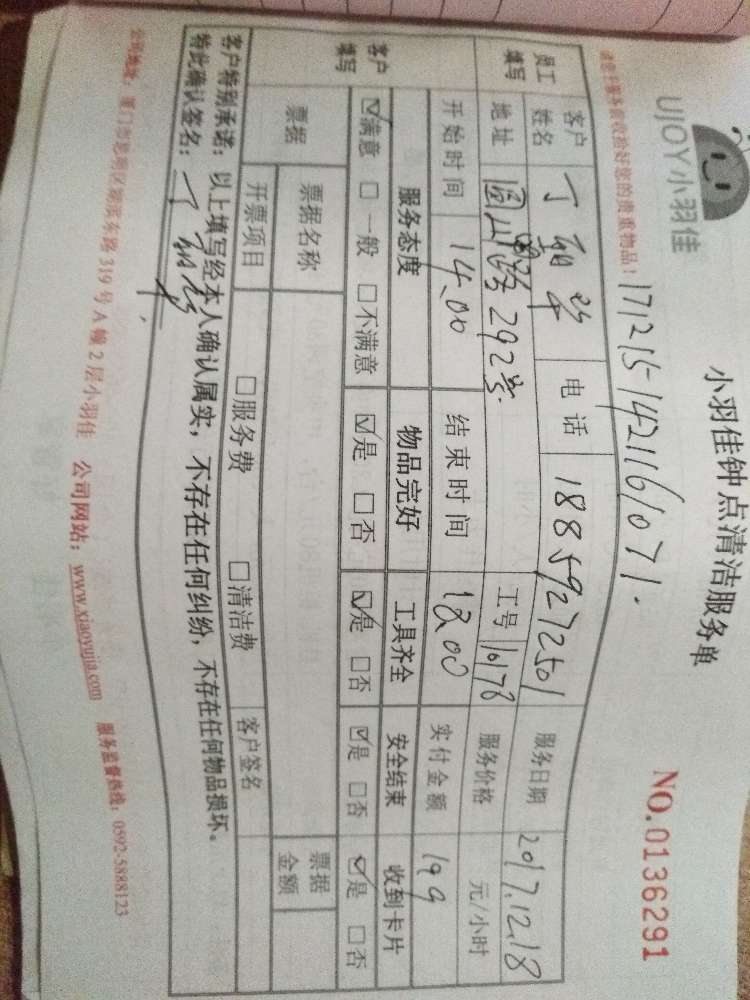 UJOY小羽佳
小羽佳钟点清洁服务单
NO.0136291
请您于服务前收拾好您的贵重物品！
1712151421161071.
员工填写
客户姓名 丁 华 电话 18859272501 服务日期 2017.12.18
地址 圆山路292号. 工号 10178 服务价格 元/小时
开始时间 14.00 结束时间 18.00 实付金额 199
客户填写
服务态度 物品完好 工具齐全 安全结束 收到卡片
☑满意 □一般 □不满意 ☑是 □否 ☑是 □否 ☑是 □否 ☑是 □否
票据 票据名称 票据金额
开票项目 □服务费 □清洁费 客户签名
客户特别承诺：以上填写经本人确认属实，不存在任何纠纷，不存在任何物品损坏。
特此确认签名：丁
公司地址：厦门市思明区湖滨东路319号A幢2层小羽佳 公司网站：www.xiaoyujia.com 服务监督热线：0592-5888123